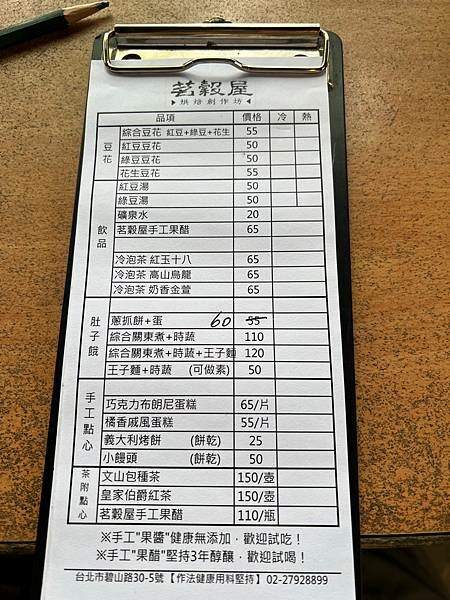 茗穀屋
▶烘焙創作坊◀
品項 價格 冷 熱
豆花
綜合豆花 紅豆+綠豆+花生 55
紅豆豆花 50
綠豆豆花 50
花生豆花 55
飲品
紅豆湯 50
綠豆湯 50
礦泉水 20
茗穀屋手工果醋 65
冷泡茶 紅玉十八 65
冷泡茶 高山烏龍 65
冷泡茶 奶香金萱 65
肚子餓
蔥抓餅+蛋 60 55
綜合關東煮+時蔬 110
綜合關東煮+時蔬+王子麵 120
王子麵+時蔬 (可做素) 50
手工點心
巧克力布朗尼蛋糕 65/片
橘香戚風蛋糕 55/片
義大利烤餅 (餅乾) 25
小饅頭 (餅乾) 50
茶附點心
文山包種茶 150/壺
皇家伯爵紅茶 150/壺
茗穀屋手工果醋 110/瓶
※手工"果醬"健康無添加，歡迎試吃！
※手工"果醋"堅持3年醇釀，歡迎試喝！
台北市碧山路30-5號 【作法健康用料堅持】 02-27928899